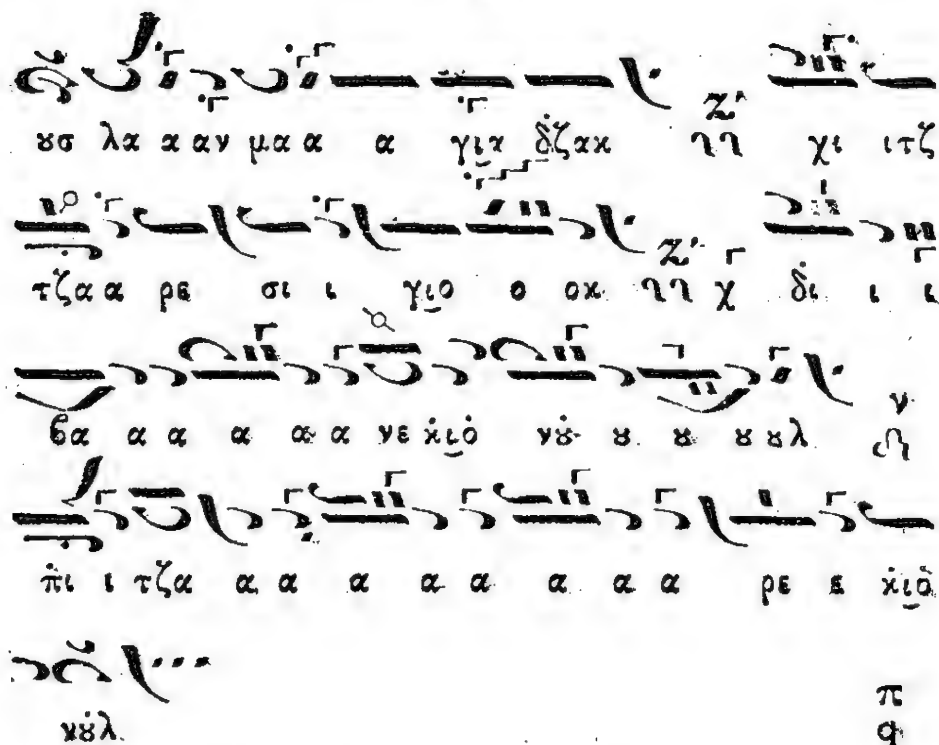 ȣσ λα α αν μα α α για δ̇ζακ Ζʹ χι ιτζ
τζα α ρε σι ι γιο ο οκ Ζʹ χ δ̇ι ι ι
βα α α α α α νε κ̇ιὸ νȣ̇ ȣ ȣ ȣ ȣλ ν
π̇ι ι τζα α α α α α α α α ρε ε κ̇ιὸ
νȣ̇λ π q